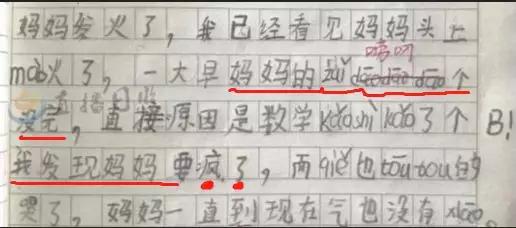 妈妈发火了，我已经看见妈妈头上
mào火了，一大早妈妈的zuǐ dāo dāo dāo个
没完，直接原因是数学kǎoshì kǎo了个B！
我发现妈妈要疯了，而qiě也tōu tou的
哭了，妈妈一直到现在气也没有xiāo。